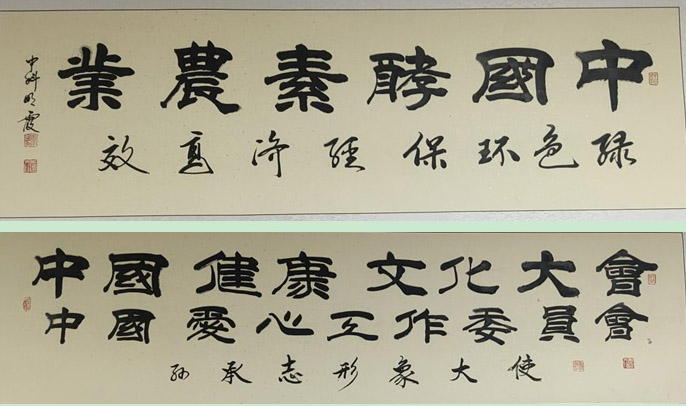 中國酵素農業
绿色环保经济高效
中科明霞
中國健康文化大會
中國愛心工作委員會
孙承志形象大使